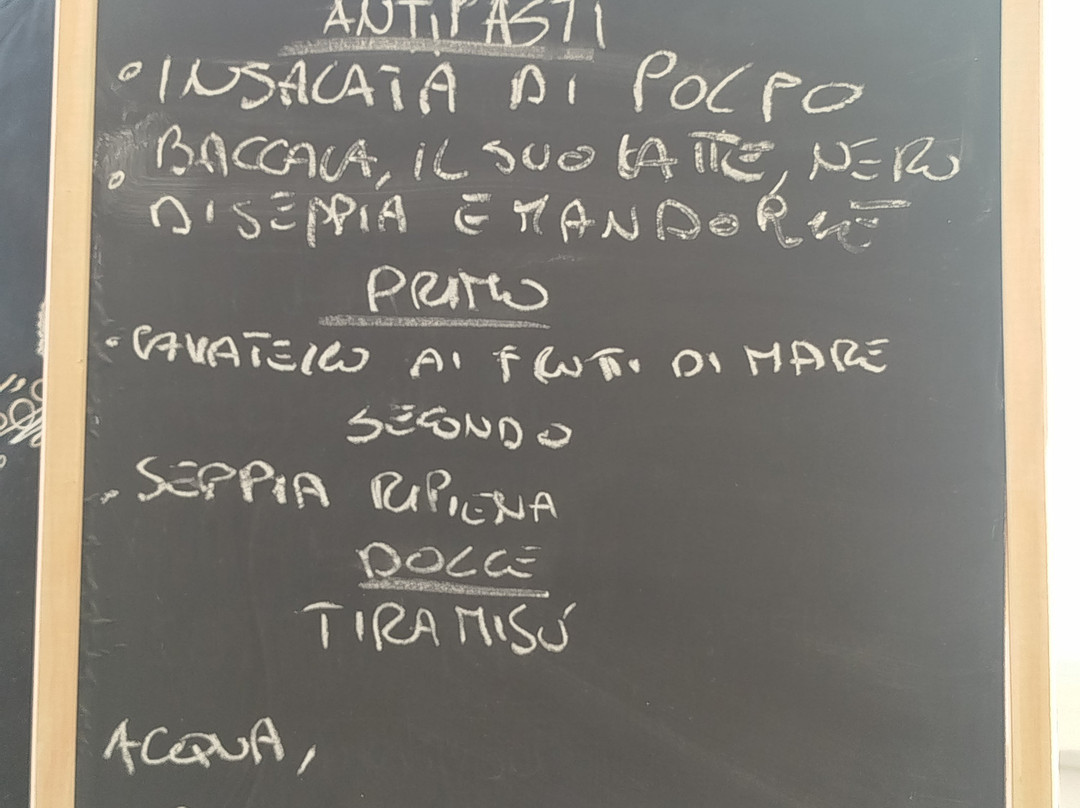 ANTIPASTI
• INSALATA DI POLPO
• BACCALA, IL SUO LATTE, NERO
DI SEPPIA E MANDORLE
PRIMO
• CAVATELLO AI FRUTTI DI MARE
SECONDO
• SEPPIA RIPIENA
DOLCE
TIRAMISÚ
ACQUA,